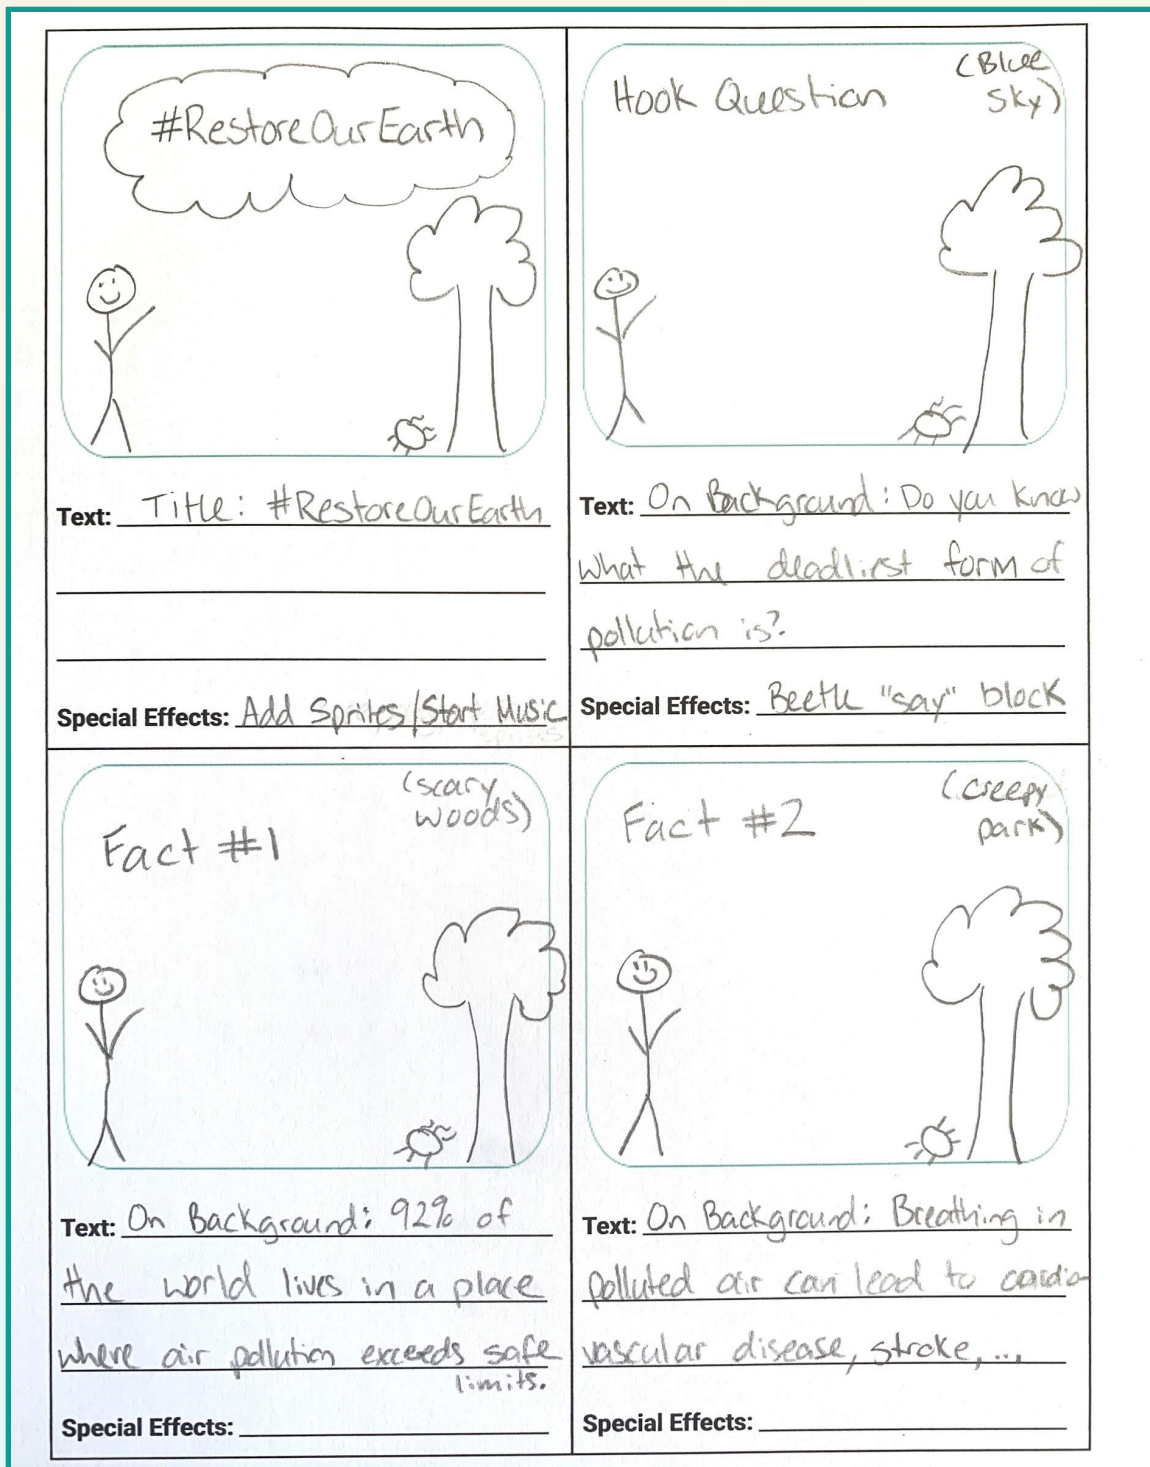 #RestoreOurEarth
Text: Title: #RestoreOurEarth
Special Effects: Add Sprites/Start Music
Hook Question
(Blue
Sky)
Text: On Background: Do you know
what the deadliest form of
pollution is?
Special Effects: Beetle "say" block
Fact #1
(scary
woods)
Text: On Background: 92% of
the world lives in a place
where air pollution exceeds safe
limits.
Special Effects:
Fact #2
(creepy
park)
Text: On Background: Breathing in
polluted air can lead to cardio-
vascular disease, stroke, ...
Special Effects: